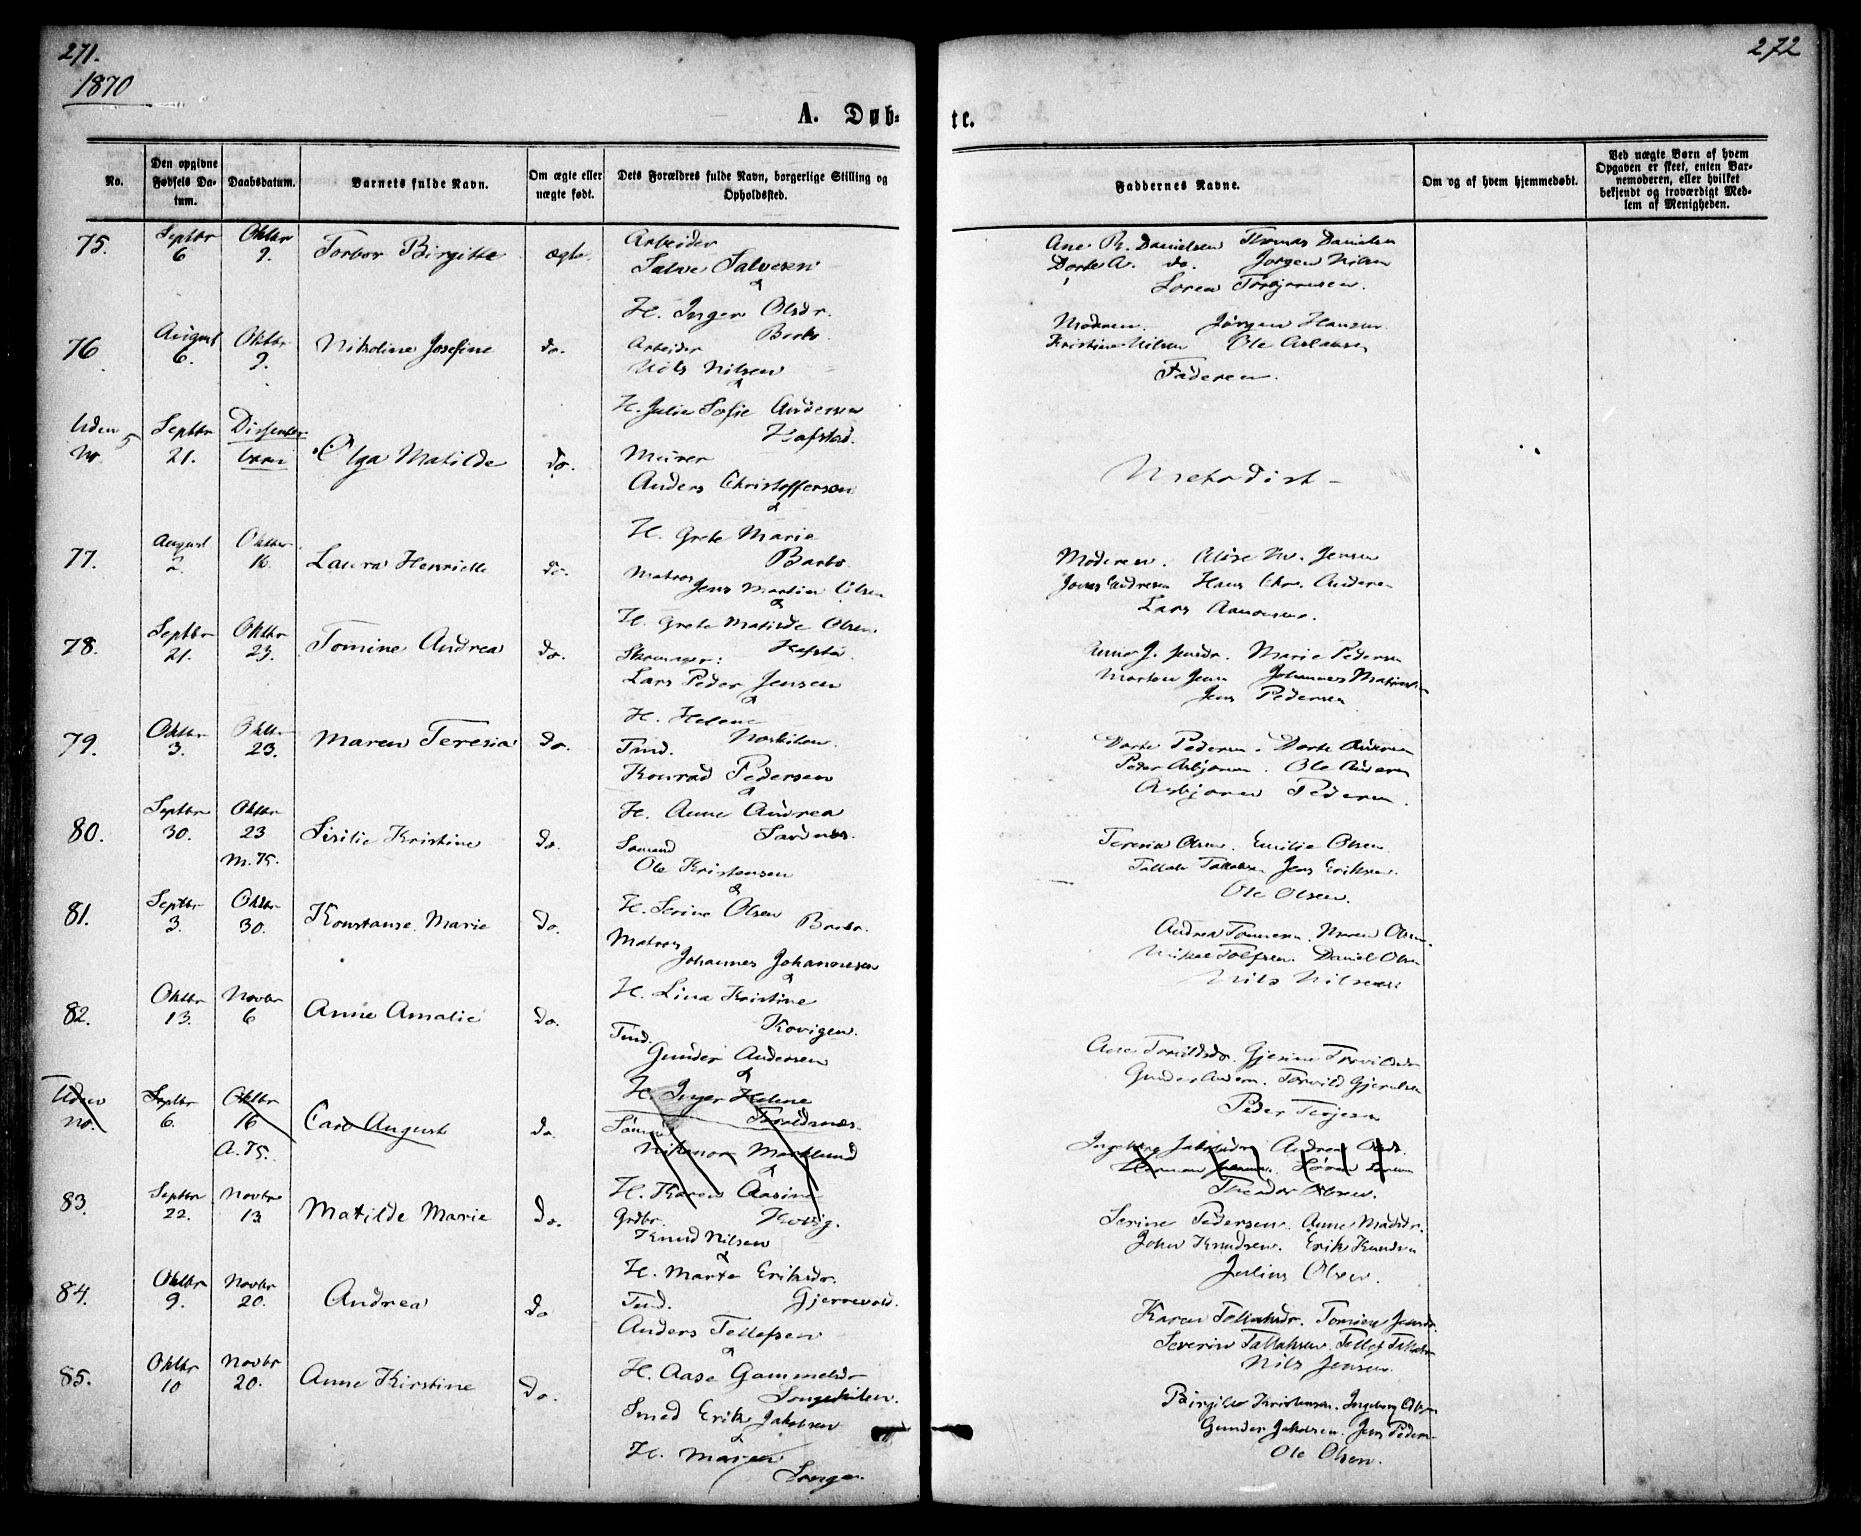 271.
1870
272
A. Døb-
te.
No.
Den opgivne Fødsels Da-
tum.
Daabsdatum.
Barnets fulde Navn.
Om ægte eller
uægte født.
Dets Forældres fulde Navn, borgerlige Stilling og
Opholdssted.
Faddernes Navne.
Om og af hvem hjemmedøbt.
Ved uægte Børn af hvem
Opgaven er skeet, enten Bar-
nemoderen, eller hvilket
bekjendt og troværdigt Med-
lem af Menigheden.
75.
Septbr
6
Oktbr
9.
Torbor Birgitte
ægte.
Arbeider
Salve Salvesen
&
H. Inger Olsdr.
Barbo.
Ane Danielsen Thomas Danielsen
Dorte A. do. Jørgen Nilsen
Soren Torbjørnsen.
76
August
6.
Oktbr
9.
Nikoline Josefine
do.
Arbeider
Nils Nilsen
&
H. Julie Sofie Andersen
Hafstad.
Modren. Jørgen Hansen
Kristine Nilsen Ole Aslaksen
Faderen.
Uden
No.
Septbr
21.
Dissenter
barn
Olga Matilde
do.
Murer
Anders Christoffersen
&
H. Grete Marie
Barbo
Methodist -
77.
August
2.
Oktbr
16.
Laura Henriette
do.
Matros
Jens Martin Olsen
&
H. Grete Matilde Olsen.
Hafstad.
Moderen. Jensen
Jonas Andresen Hans Chr. Andersen
Lars Aanonsen.
78.
Septbr
21.
Oktbr
23.
Tomine Andrea
do.
Skomager:
Lars Peder Jensen
&
H. Helene
Noskilen.
Anne J. Jensdr. Marie Pedersen
Morten Jensen
Jens Pedersen
79.
Oktbr
3.
Oktbr
23.
Maren Teresia
do.
Tmd.
Konrad Pedersen
&
H. Anne Andrea
Sandnes.
Dorte Pedersen. Dorte Andersen
Peder Asbjørnsen. Ole Andersen
Asbjørn Pedersen.
80.
Septbr
30.
Oktbr
23
M. 75.
Sisilie Kristine
do.
Sømand
Ole Kristensen
&
H. Serine Olsen
Barbo.
Teresia Olsen. Emilie Olsen
Tallak Tallaksen Jens Eriksen.
Ole Olsen.
81.
Septbr
3.
Oktbr
30.
Konstanse Marie
do.
Matros
Johannes Johannesen
&
H. Lina Kristine
Kovigen.
Andrea Tønnesen. Maren Olsen.
Mikal Tolfsen. Daniel Olsen
Nils Nilsen.
82.
Oktbr
13.
Novbr
6
Anne Amalie
do.
Tmd.
Gunder Andersen
&
H. Inger Helene
Toroldsnæs.
Aase Torvildsdr. Gjerine Torvildsdr
Gunder Andersen. Torvild Gjerulsen
Peder Terjesen
Uden
No.
Septbr
6.
Oktbr
16
A. 75.
Carl August
do.
Sømand
Nikanor Marklund
&
H. Karen Aasine
Kovig.
Ingeborg Andrea Olsdr.
Herman
Theodor Olsen.
83.
Septbr
22.
Novbr
13.
Matilde Marie
do.
Grdbr.
Knud Nilsen
&
H. Marte Eriksdr.
Gjerrevold.
Serine Pedersen. Anne Madsdr.
John Knudsen. Erik Knudsen
Julius Olsen.
84.
Oktbr
9.
Novbr
20.
Andrea
do
Tmd.
Anders Tellefsen
&
H. Aase Gammelsdr
Songekilen.
Karen Tallaksdr. Tomine Jensdr.
Severin Tallaksen. Tellef Tallaksen
Nils Jensen.
85.
Oktbr
10
Novbr
20.
Anne Kirstine
do.
Smed Erik Jakobsen
&
H. Maren
Songe.
Birgitte Kristensen. Ingeborg Olsen
Gunder Jakobsen. Jens Pedersen
Ole Olsen.